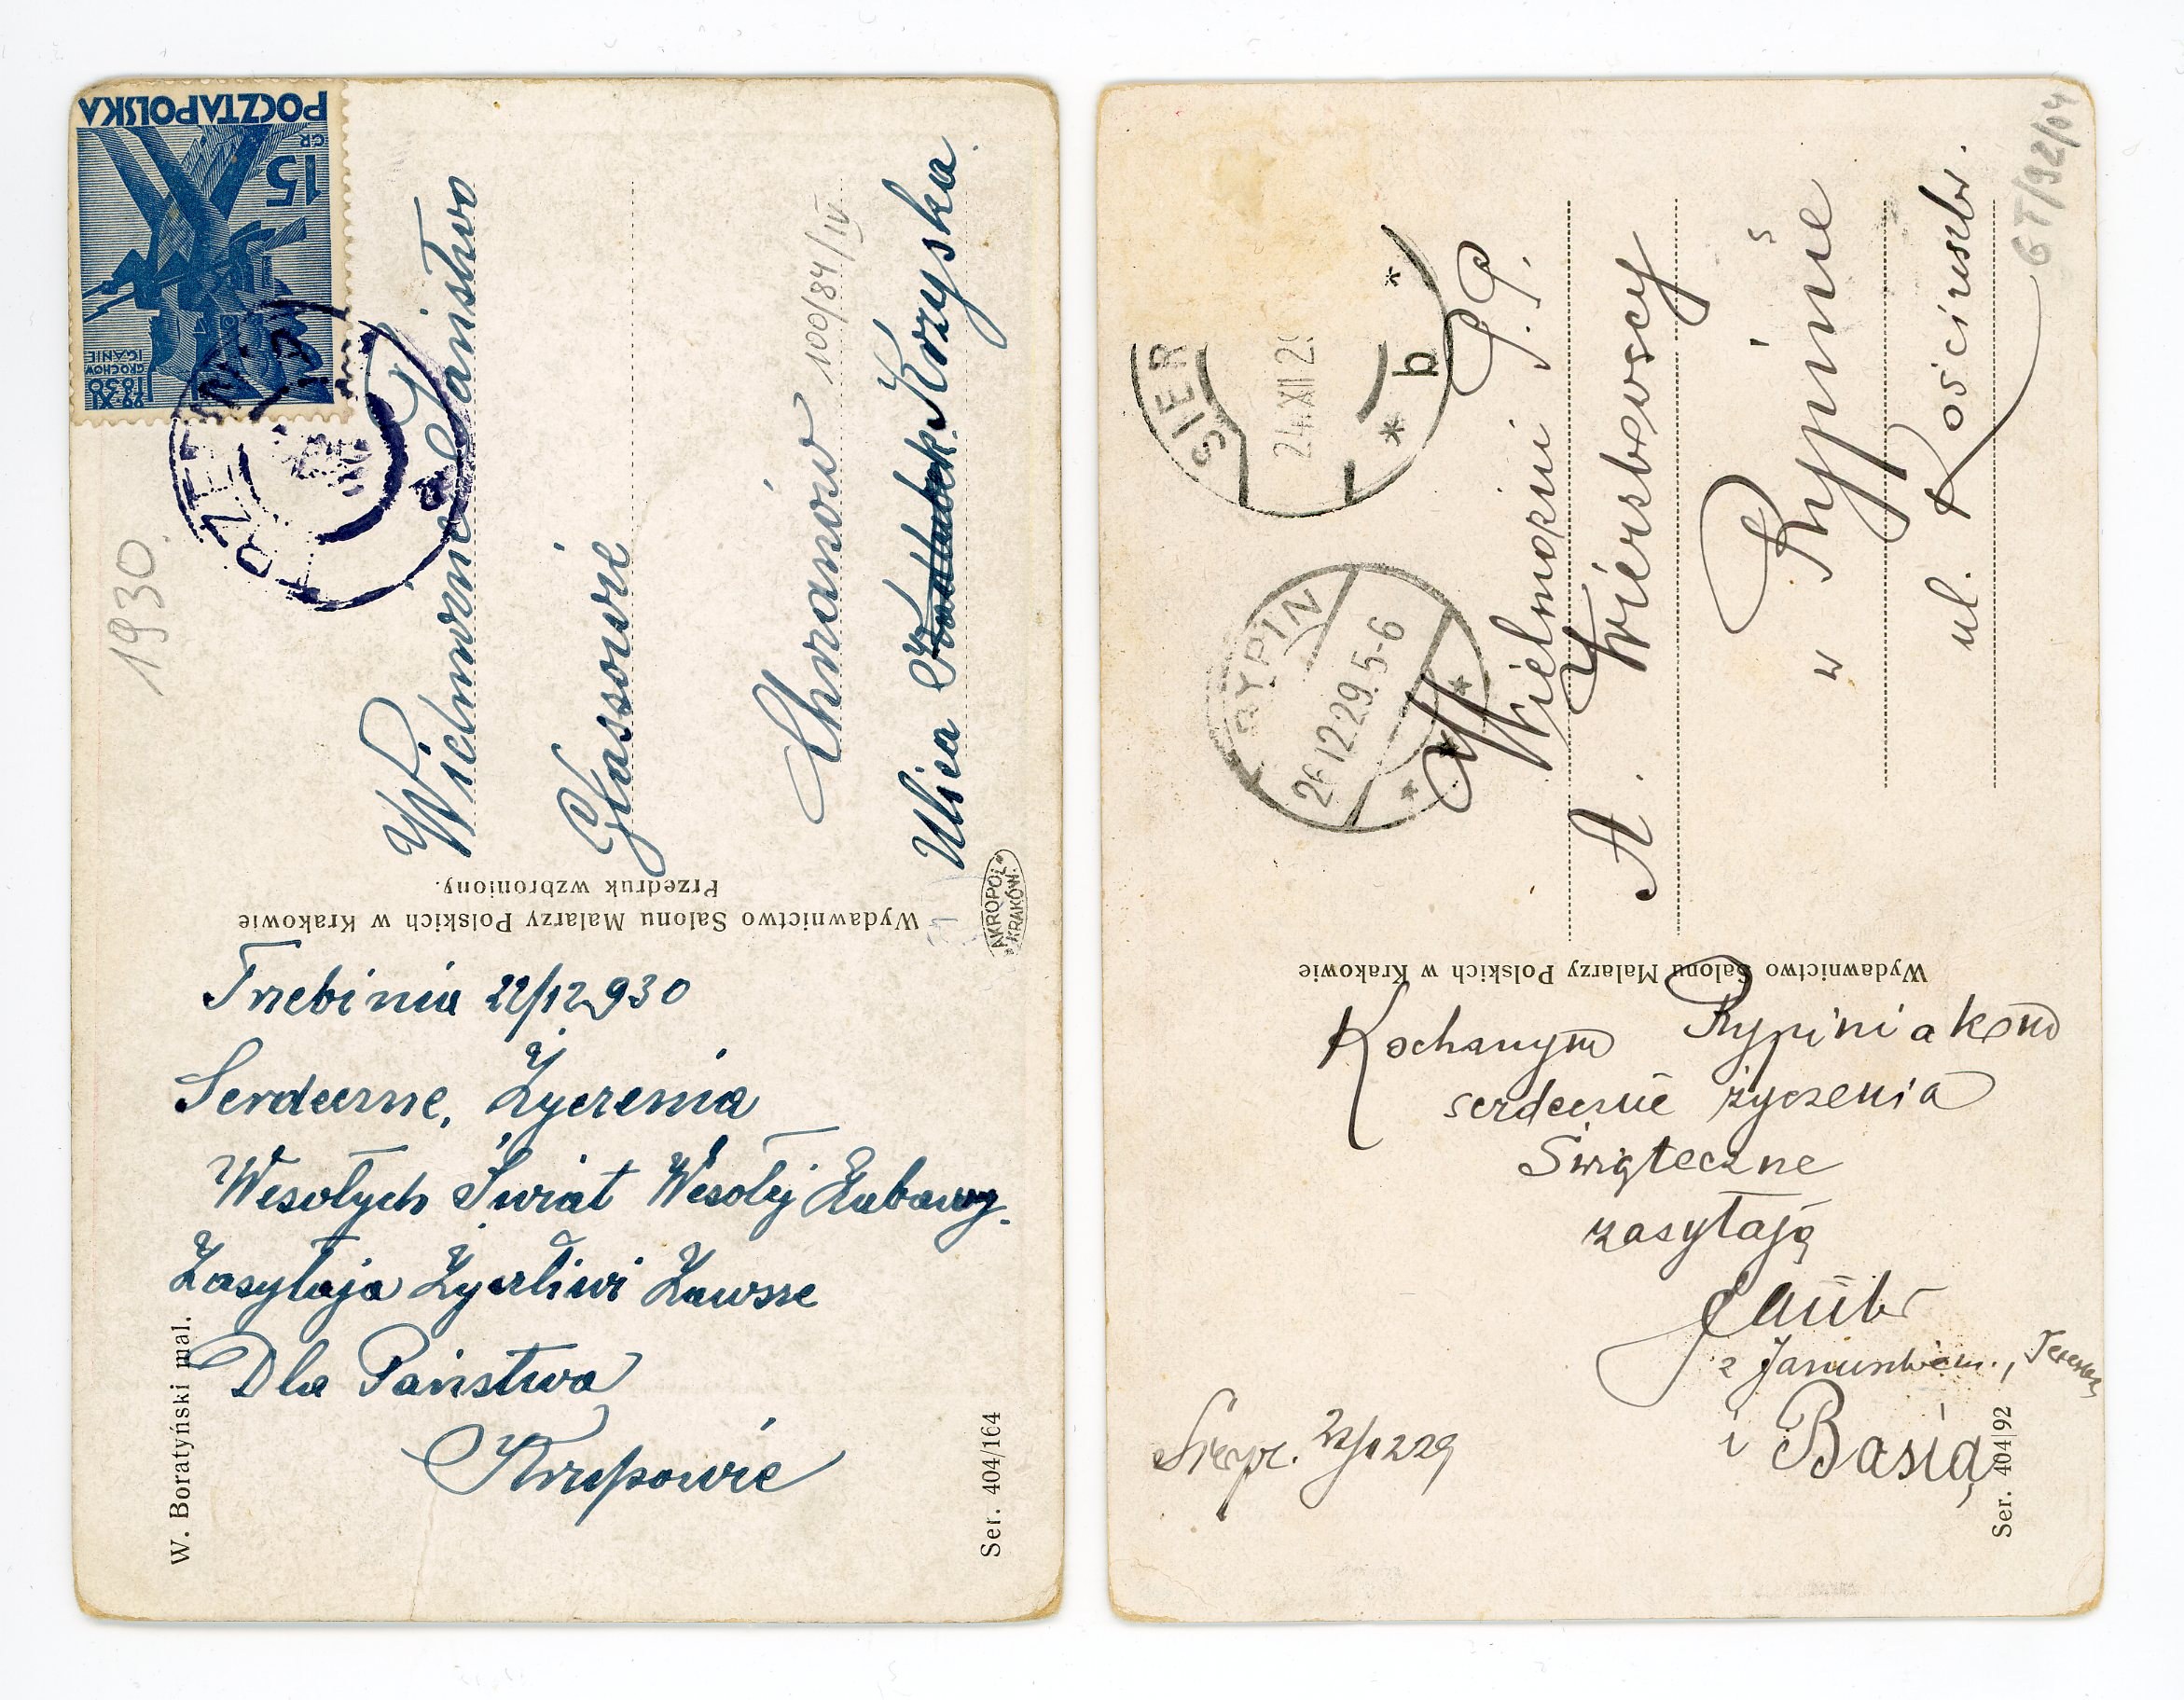 POCZTA POLSKA
15
GR
29·XI
1830
GROCHÓW
IGANIE
1930.
TRZEBINIA
a
Wielmożne Państwo
Głassowie
Chrzanów
100/84/IV
Ulica Krzyska
Przedruk wzbroniony.
Wydawnictwo Salonu Malarzy Polskich w Krakowie
„AKROPOL"
KRAKÓW.
Trzebinia 22/12 930
Serdeczne, Życzenia
Wesołych Świat Wesołej Zabawy
Zasyłaja Życzliwi Zawsze
Dla Państwa
W. Boratyński mal.
Ser. 404/164
SIER
24 XII 29
* b *
RYPIN
26 12 29. 5-6
* * *
Wielmożni P. P.
A. Wierzbowscy
w Rypinie
ul. Kościuszki.
GT/92/04
Wydawnictwo Salonu Malarzy Polskich w Krakowie
Kochanym Rypiniakom
serdeczne życzenia
Świąteczne
zasyłają
z Januszkiem.,
i Basią
Sierpc. 22/12 29
Ser. 404|92